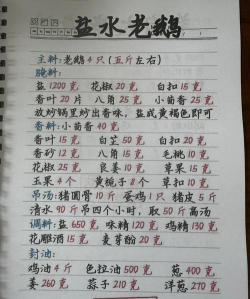 盐水老鹅
主料：老鹅4只（五斤左右）
腌料：
盐1200克 花椒20克 白扣15克
香叶20片 八角25克 小茴香25克
放炒锅里炒出香味，盐成黄褐色即可
香料：小茴香40克
香叶15克 白芷50克 白扣20克
香砂12克 八角15克 毛桃10克
花椒25克 良姜10克 草果15克
玉果4个 黄栀子8个 草扣10克
吊汤：猪圆骨10斤 蛋鸡1只 猪皮5斤
清水90斤吊四个小时，取50斤高汤
调料：盐650克 味精120克 鸡精130克
花雕酒15克 麦芽酚20克
封油：
鸡油4斤 色拉油500克 葱400克
姜260克 蒜子210克 洋葱270克